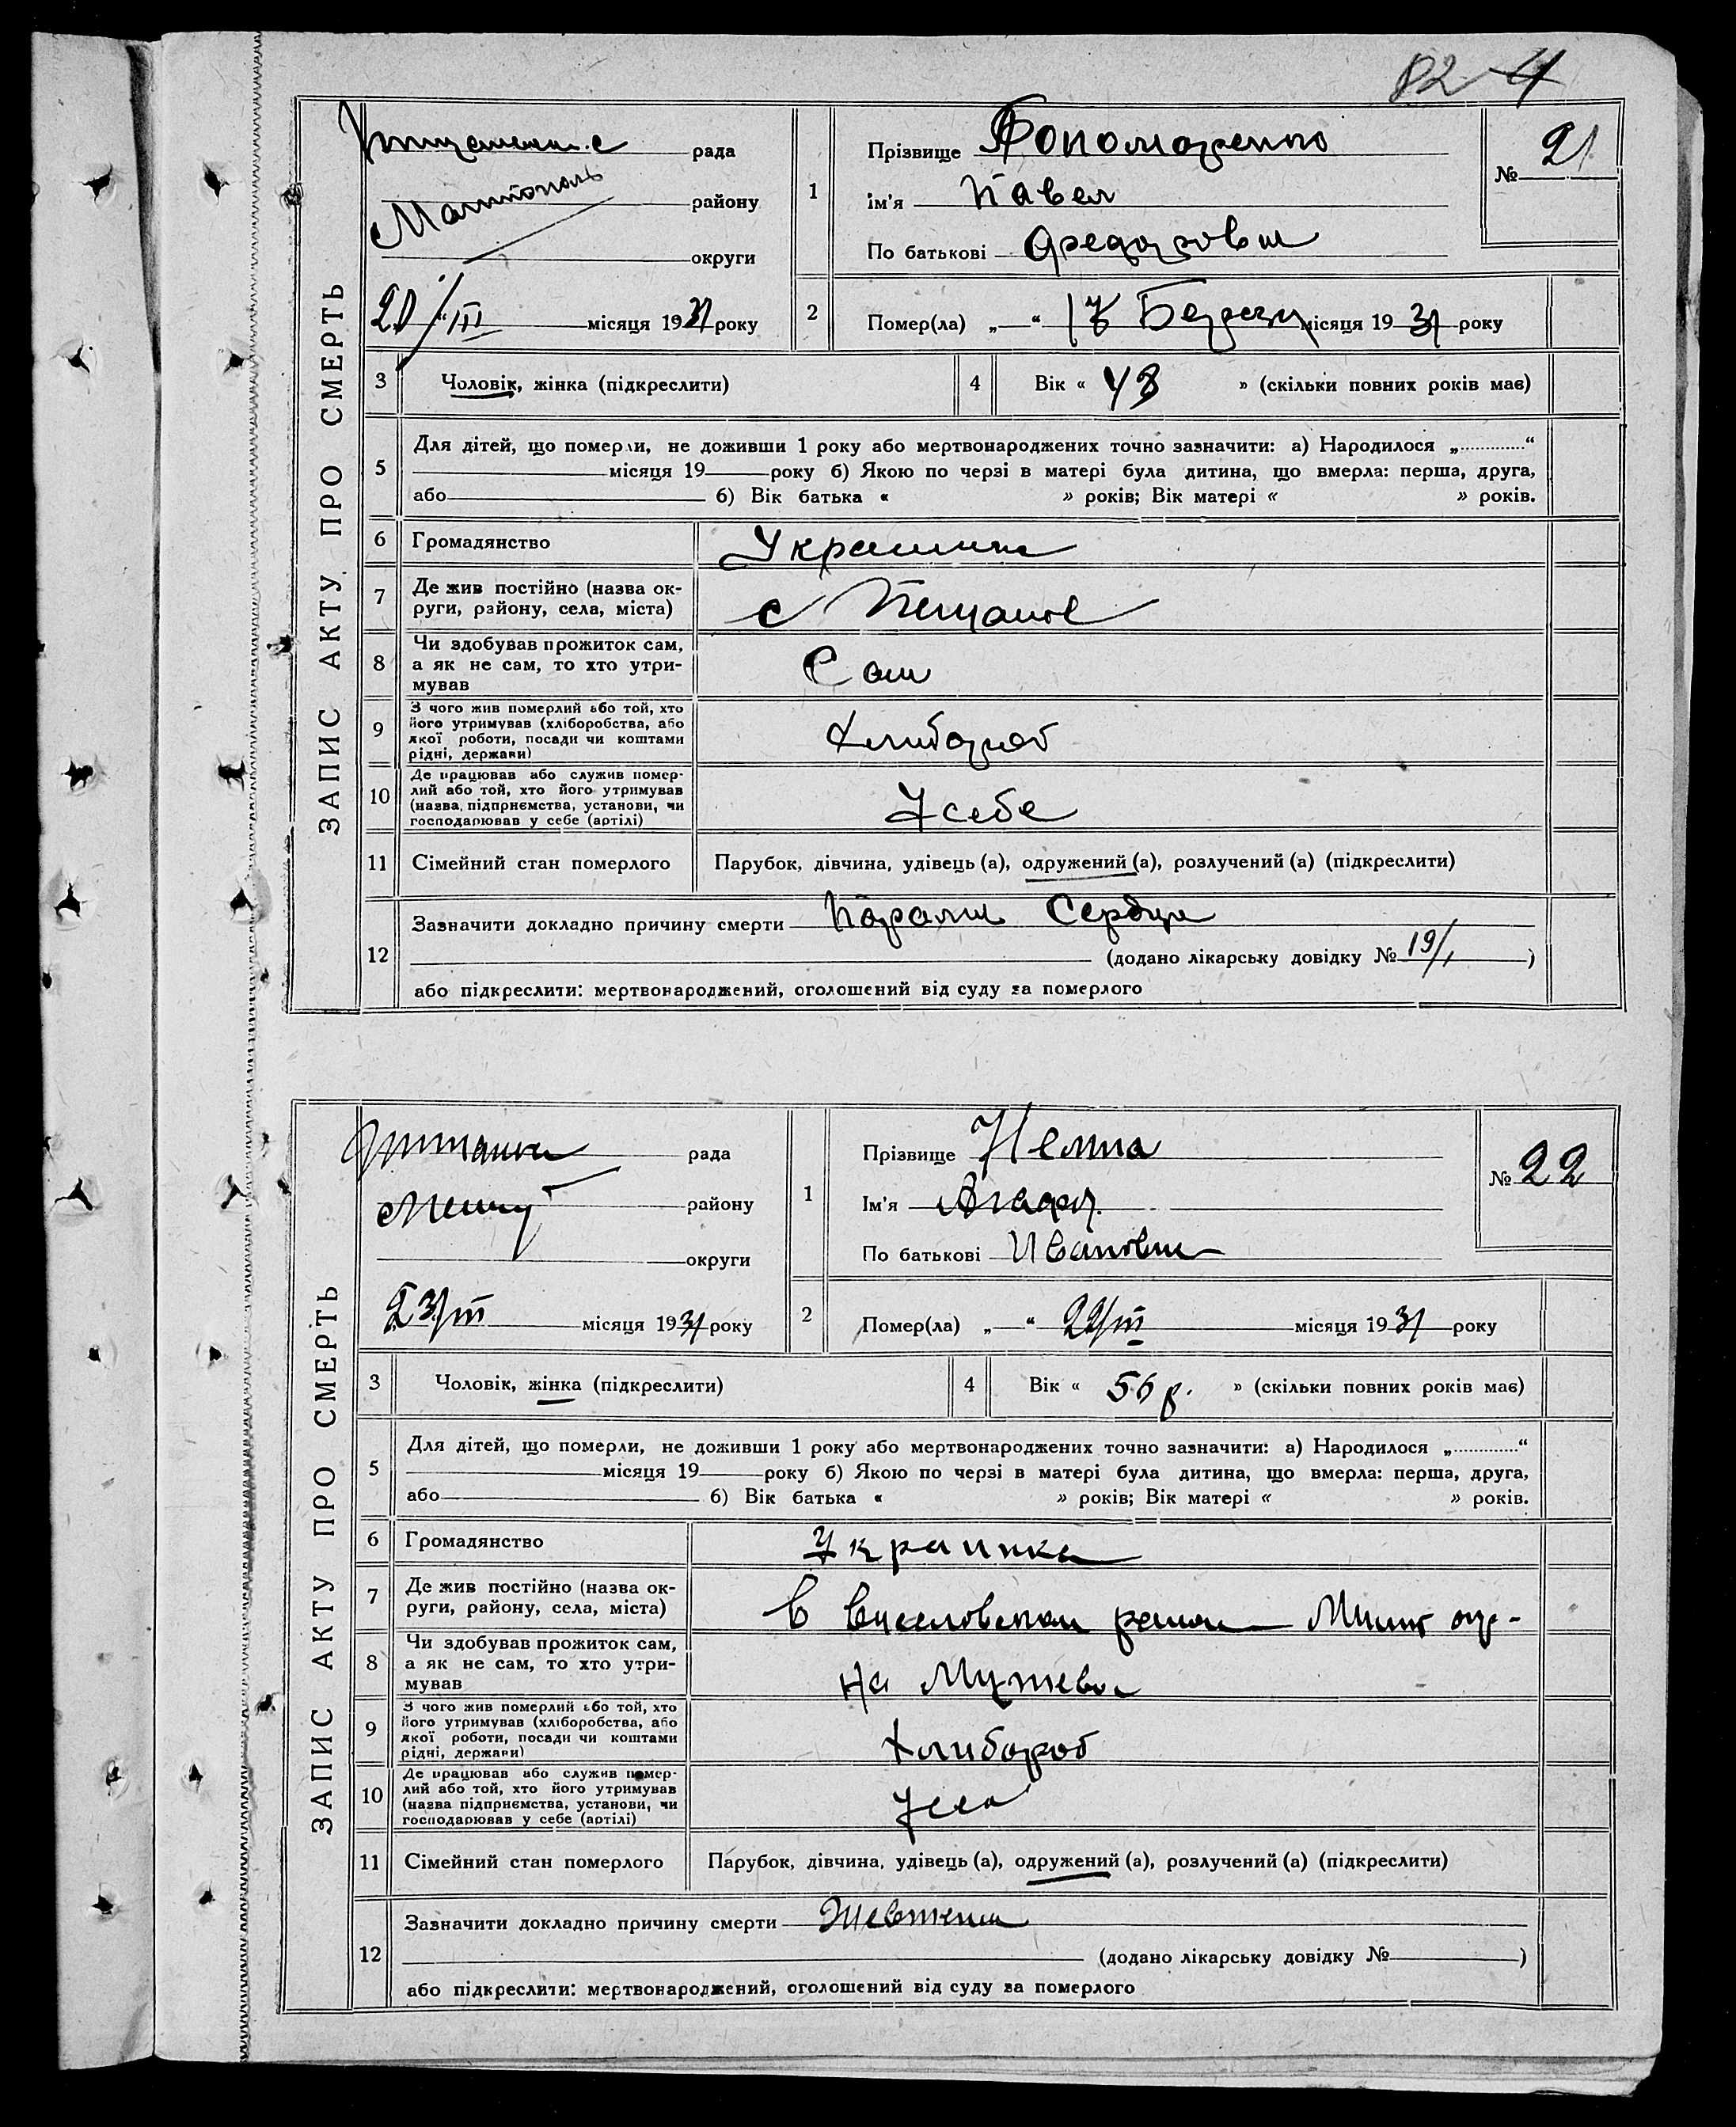 82 4
ЗАПИС АКТУ ПРО СМЕРТЬ
рада
Мелітополь району
округи
20/III місяця 1931 року
1
Прізвище Пономаренко
Ім'я Павел
По батькові Федорович
№ 21
2
Помер(ла) „—“ 17 Березня місяця 1931 року
3 Чоловік, жінка (підкреслити)
4 Вік « 48 » (скільки повних років має)
5 Для дітей, що померли, не доживши 1 року або мертвонароджених точно зазначити: а) Народилося „............“
місяця 19 року б) Якою по черзі в матері була дитина, що вмерла: перша, друга,
або б) Вік батька « » років; Вік матері « » років.
6 Громадянство Украинец
7 Де жив постійно (назва ок-
руги, району, села, міста) с Пещаное
8 Чи здобував прожиток сам,
а як не сам, то хто утри-
мував Сам
9 З чого жив померлий або той, хто
його утримував (хліборобства, або
якої роботи, посади чи коштами
рідні, держави) Хлибороб
10 Де працював або служив помер-
лий або той, хто його утримував
(назва підприємства, установи, чи
господарював у себе (артілі) У себе
11 Сімейний стан померлого Парубок, дівчина, удівець (а), одружений (а), розлучений (а) (підкреслити)
12 Зазначити докладно причину смерти Порали Сердца
(додано лікарську довідку № 19/1 )
або підкреслити: мертвонароджений, оголошений від суду за померлого
ЗАПИС АКТУ ПРО СМЕРТЬ
рада
району
округи
23/III місяця 1931 року
1
Прізвище
Ім'я Агаф.
По батькові Ивановн
№ 22
2
Помер(ла) „—“ 22/III місяця 1931 року
3 Чоловік, жінка (підкреслити)
4 Вік « 56 р. » (скільки повних років має)
5 Для дітей, що померли, не доживши 1 року або мертвонароджених точно зазначити: а) Народилося „............“
місяця 19 року б) Якою по черзі в матері була дитина, що вмерла: перша, друга,
або б) Вік батька « » років; Вік матері « » років.
6 Громадянство Украинка
7 Де жив постійно (назва ок-
руги, району, села, міста) в
8 Чи здобував прожиток сам,
а як не сам, то хто утри-
мував на
9 З чого жив померлий або той, хто
його утримував (хліборобства, або
якої роботи, посади чи коштами
рідні, держави) Хлибороб
10 Де працював або служив помер-
лий або той, хто його утримував
(назва підприємства, установи, чи
господарював у себе (артілі)
11 Сімейний стан померлого Парубок, дівчина, удівець (а), одружений (а), розлучений (а) (підкреслити)
12 Зазначити докладно причину смерти
(додано лікарську довідку № )
або підкреслити: мертвонароджений, оголошений від суду за померлого